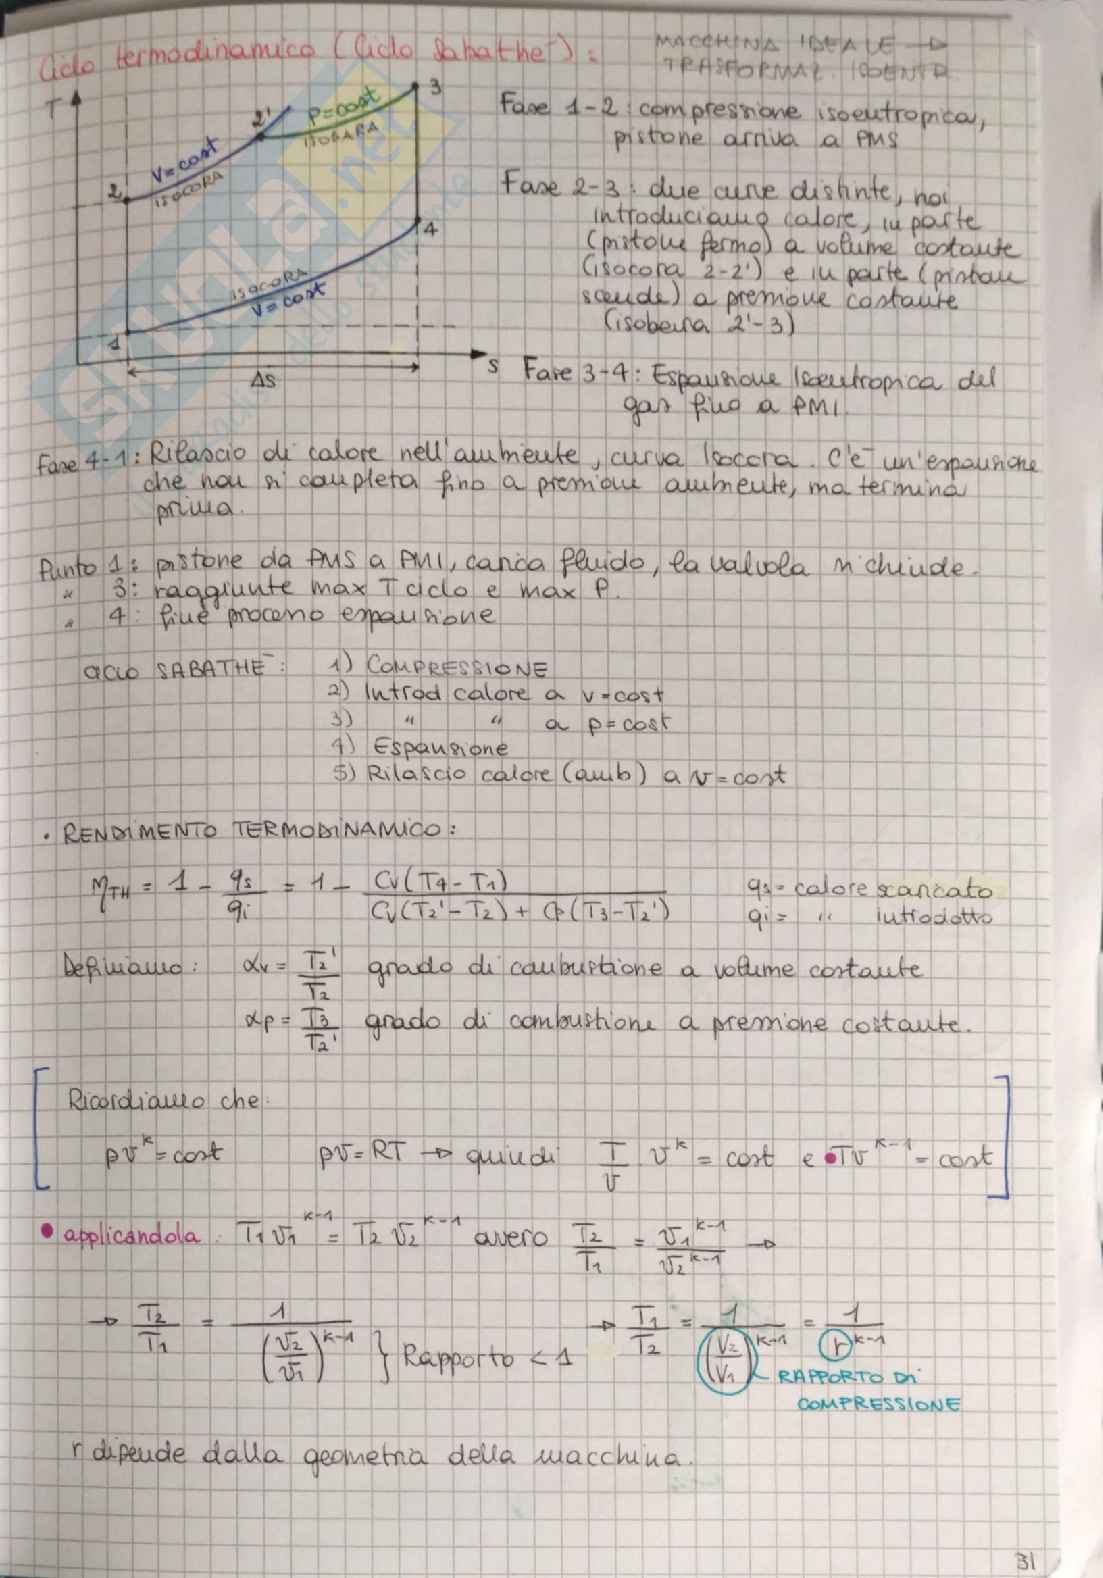 Ciclo termodinamico (Ciclo Sabathe'):
MACCHINA IDEALE →
TRASFORMAZ. IDENTA
T
2'
P=cost
ISOBARA
3
V=cost
ISOCORA
2
4
ISOCORA
V=cost
1
S
Δs
Fase 1-2: compressione isoentropica,
pistone arriva a PMS
Fase 2-3: due curve distinte, noi
introduciamo calore, in parte
(pistone fermo) a volume costante
(isocora 2-2') e in parte (pistone
scende) a pressione costante
(isobara 2'-3)
Fase 3-4: Espansione Isoentropica del
gas fino a PMI.
Fase 4-1: Rilascio di calore nell'ambiente, curva Isocora. C'è un'espansione
che non si completa fino a pressione ambiente, ma termina
prima.
Punto 1: pistone da PMS a PMI, carica fluido, la valvola si chiude.
" 3: raggiunte max T ciclo e max P.
" 4: fine processo espansione
Ciclo SABATHE': 1) COMPRESSIONE
2) Introd calore a v=cost
3) " " a p=cost
4) Espansione
5) Rilascio calore (amb) a v=cost
• RENDIMENTO TERMODINAMICO:
ηTH = 1 - qs/qi = 1 - Cv(T4-T1) / Cv(T2'-T2) + Cp(T3-T2')
qs = calore scaricato
qi = " introdotto
Definiamo: αv = T2'/T2 grado di combustione a volume costante
αp = T3/T2' grado di combustione a pressione costante.
Ricordiamo che:
pv^k = cost pv=RT → quindi T/v v^k = cost e •Tv^k-1 = cost
• applicandola: T1 v1^k-1 = T2 v2^k-1 avero T2/T1 = v1^k-1/v2^k-1 →
→ T2/T1 = 1/(v2/v1)^k-1 } Rapporto < 1 → T1/T2 = 1/(V2/V1)^k-1 = 1/r^k-1
RAPPORTO Di
COMPRESSIONE
r dipende dalla geometria della macchina.
31